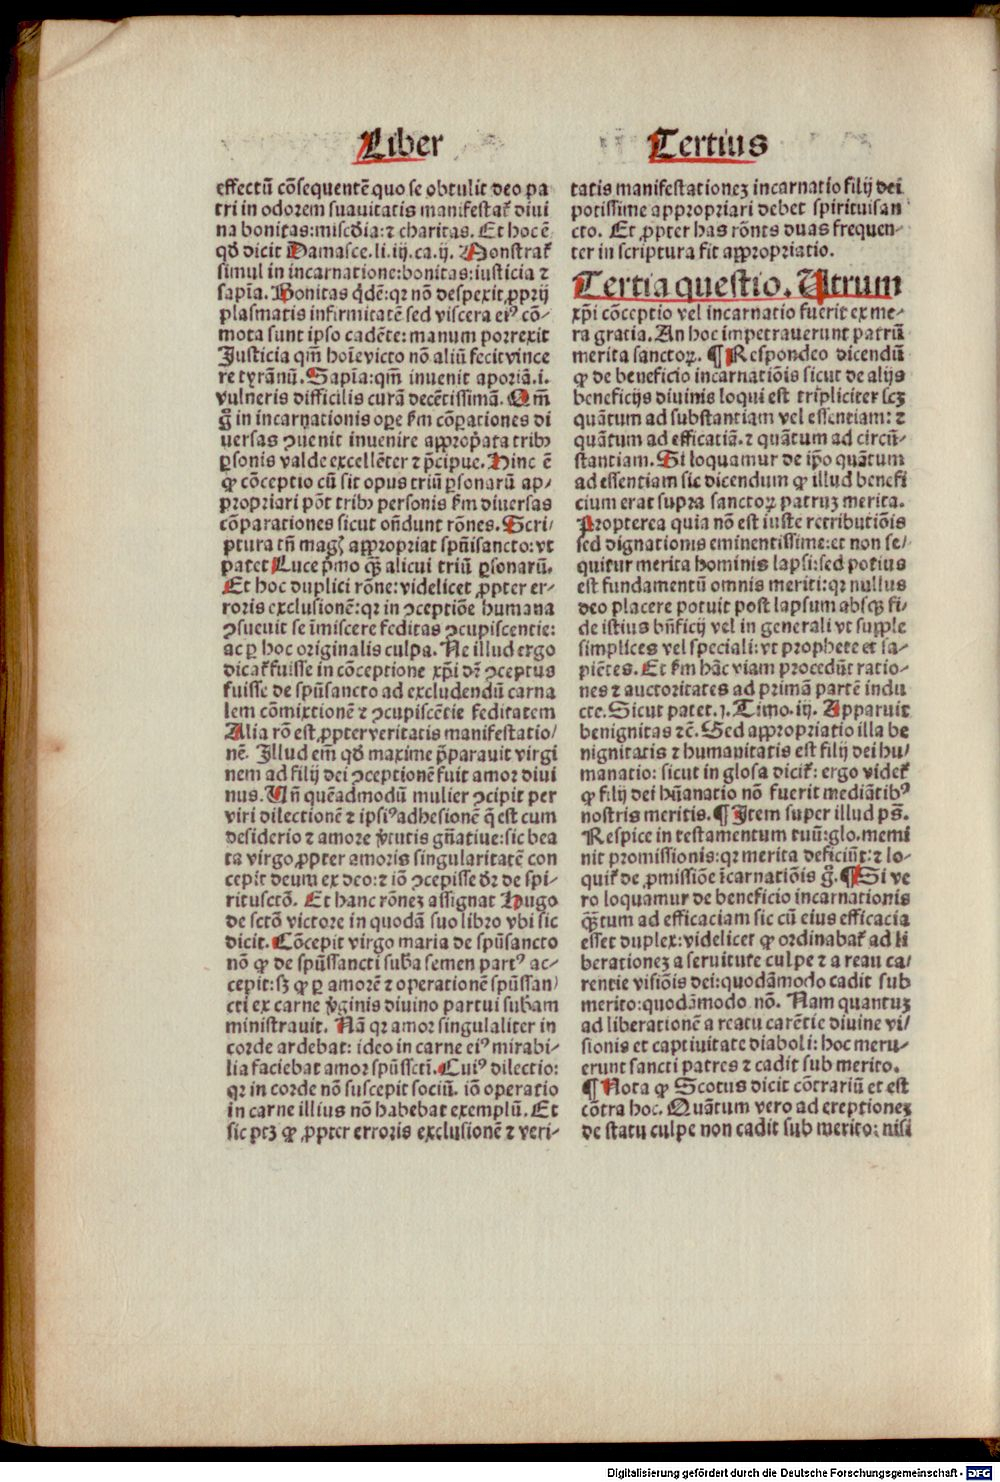 Liber
Tertius
effectū cōsequentē quo se obtulit deo pa
tri in odorem suauitatis manifestat̄ diui
na bonitas: misc̄dia: ⁊ charitas. Et hoc ē
qd̄ dicit Damasce. li. iij. ca. ij. Monstrat̄
simul in incarnatione: bonitas: iusticia ⁊
sapīa. Bonitas q̇dē: qꝛ nō despexit ꝓprij
plasmatis infirmitatē sed viscera eiꝰ cō-
mota sunt ipso cadēte: manum porrexit
Justicia qm̄ hoīe victo nō aliū fecit vince
re tyrānū. Sapīa: qm̄ inuenit aporiā. i.
vulneris difficilis curā decētissimā. Qm̄
g̊ in incarnationis oꝑe ẜm cōꝑationes di
uersas ꝯuenit inuenire apꝓpͥata tribꝫ
ꝑsonis valde excellēter ⁊ p̄cipue. Hinc ē
ꝙ cōceptio cū sit opus triū ꝑsonarū ap-
propriari pōt tribꝫ personis ẜm diuersas
cōparationes sicut on̄dunt rōnes. Scri-
ptura tn̄ magꝭ apꝓpriat spūisancto: vt
patet Luce pͥmo qꝙ̄ alicui triū ꝑsonarū.
Et hoc duplici rōne: videlicet ꝓpter er-
roris exclusionē: qꝛ in ꝯceptiōe humana
ꝯsueuit se īmiscere feditas ꝯcupiscentie:
ac ꝑ hoc originalis culpa. Ne illud ergo
dicat̄ fuisse in cōceptione xp̄i dr̄ ꝯceptus
fuisse de spūsancto ad excludendū carna
lem cōmixtionē ⁊ ꝯcupiscētie feditatem
Alia rō est ꝓpter veritatis manifestatio/
nē. Illud em̄ qd̄ maxime p̄parauit virgi
nem ad filij dei ꝯceptionē fuit amor diui
nus. Un̄ quēadmodū mulier ꝯcipit per
viri dilectionē ⁊ ipsiꝰ adhesionē q̄ est cum
desiderio ⁊ amore v̓tutis gn̄atiue: sic bea
ta virgo ꝓpter amoris singularitatē con
cepit deum ex deo: ⁊ iō ꝯcepisse dr̄ de spi-
ritusctō. Et hanc rōneꝫ assignat Hugo
de sctō victore in quodā suo libro vbi sic
dicit. Cōcepit virgo maria de spūsancto
nō ꝙ de spūssancti sub̄a semen partꝰ ac-
cepit: sꝫ ꝙ ꝑ amorē ⁊ operationē spūssan/
cti ex carne v̓ginis diuino partui sub̄am
ministrauit. Nā qꝛ amor singulaliter in
corde ardebat: ideo in carne eiꝰ mirabi-
lia faciebat amor spūsscti. Cuiꝰ dilectio:
qꝛ in corde nō suscepit sociū. iō operatio
in carne illius nō habebat exemplū. Et
sic ptꝫ ꝙ ꝓpter erroris exclusionē ⁊ veri-
tatis manifestationeꝫ incarnatio filij dei
potissime appropriari debet spirituisan
cto. Et ꝓpter has rōnes duas frequen-
ter in scriptura fit apꝓpriatio.
Tertia questio. Utrum
xp̄i cōceptio vel incarnatio fuerit ex me-
ra gratia. An hoc impetrauerunt patrū
merita sanctoꝝ. ¶ Respondeo dicendū
ꝙ de beneficio incarnatiōis sicut de alijs
beneficijs diuinis loqui est tripliciter scꝫ
quātum ad substantiam vel essentiam: ⁊
quātum ad efficatiā. ⁊ quātum ad circū-
stantiam. Si loquamur de ip̄o quātum
ad essentiam sic dicendum ꝙ illud benefi
cium erat supra sanctoꝝ patruꝫ merita.
Propterea quia nō est iuste retributiōis
sed dignationis eminentissime: et non se/
quitur merita hominis lapsi: sed potius
est fundamentū omnis meriti: qꝛ nullus
deo placere potuit post lapsum absqꝫ fi-
de istius bn̄ficij vel in generali vt supple
simplices vel speciali: vt prophete et sa-
piētes. Et ẜm hāc viam procedūt ratio-
nes ⁊ auctoritates ad primā partē indu
cte. Sicut patet. j. Timo. iij. Apparuit
benignitas ⁊c̄. Sed appropriatio illa be
nignitatis ⁊ humanitatis est filij dei hu/
manatio: sicut in glosa dicit̄: ergo videt̄
ꝙ filij dei hūanatio nō fuerit mediātibꝰ
nostris meritis. ¶ Item super illud ps̄.
Respice in testamentum tuū: glo. memi
nit promissionis: qꝛ merita deficiūt: ⁊ lo-
quit̄ de ꝓmissiōe īcarnatiōis g̊. ¶ Si ve
ro loquamur de beneficio incarnationis
qꝙ̄tum ad efficaciam sic cū eius efficacia
esset duplex: videlicet ꝙ ordinabat̄ ad li
berationeꝫ a seruitute culpe ⁊ a reatu ca/
rentie visiōis dei: quodāmodo cadit sub
merito: quodāmodo nō. Nam quantuꝫ
ad liberationē a reatu carētie diuine vi/
sionis et captiuitate diaboli: hoc meru-
erunt sancti patres ⁊ cadit sub merito.
¶ Nota ꝙ Scotus dicit cōtrariū et est
cōtra hoc. Quātum vero ad ereptioneꝫ
de statu culpe non cadit sub merito: nisi
Digitalisierung gefördert durch die Deutsche Forschungsgemeinschaft - DFG